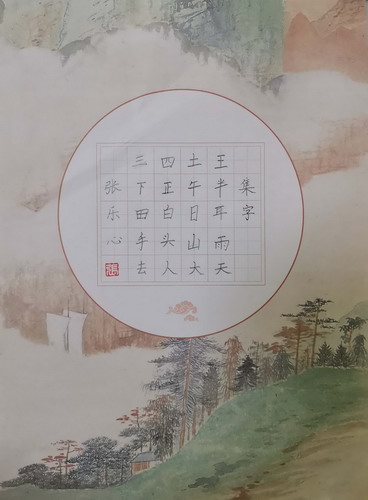 集字
王半耳雨天
土午日山大
四正白头人
三下田手去
张乐心
張